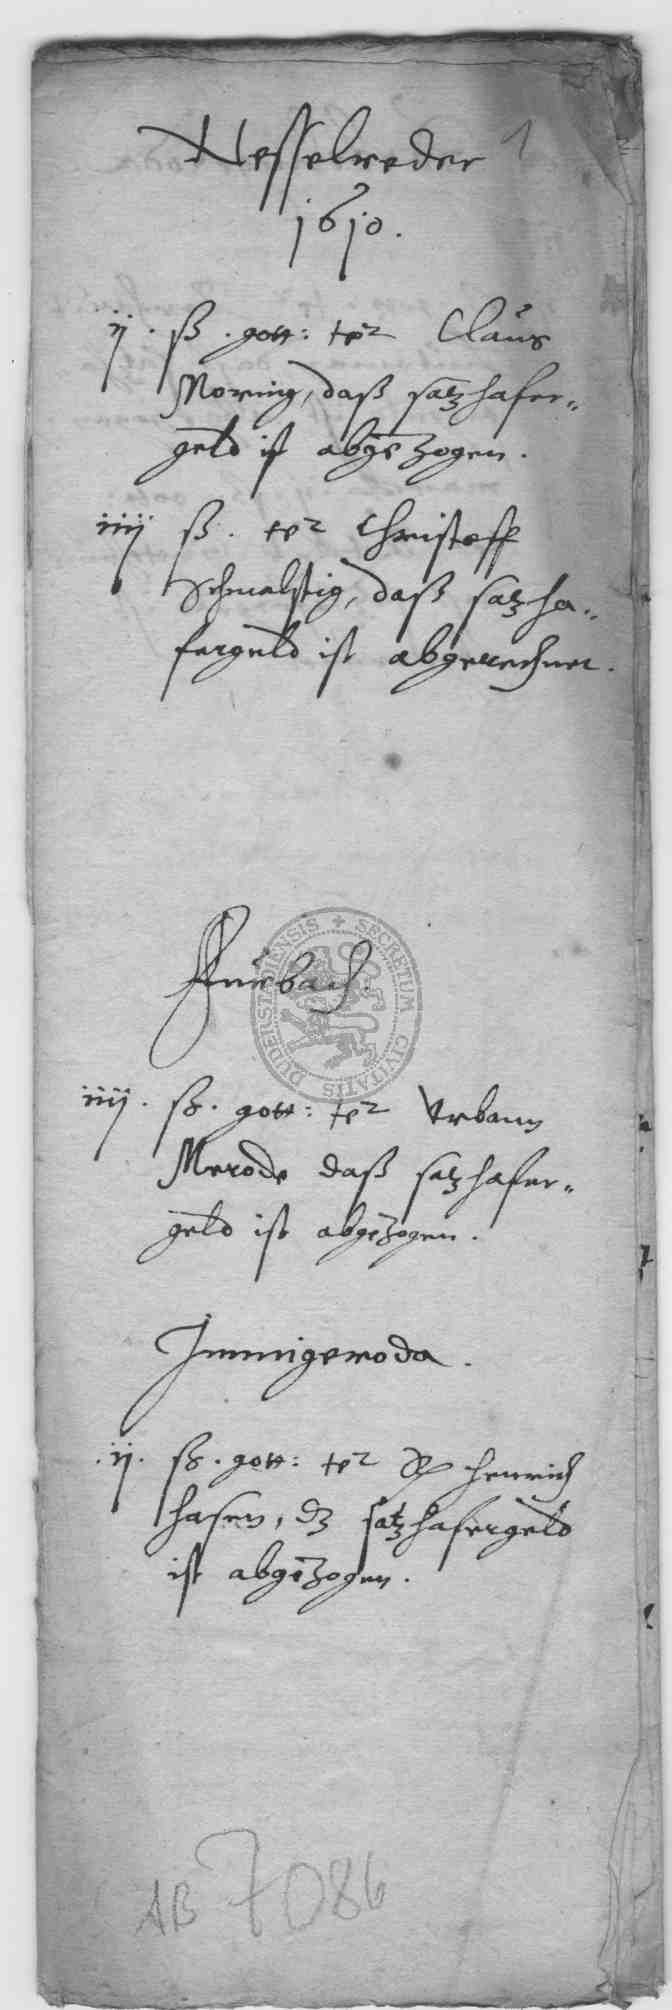 Nesselreder 1
1610.
ij. ß. gott: tet Claus
Morinig, daß satzhafer=
geld ist abgezogen.
iiij ß. tet Christoff
Schmalstig, daß satzha=
fergeld ist abgerechnet.
Furbach.
SECRETUM CIVITATIS DUDERSTADIENSIS
iiij. ß. gott: tet Urbann
Merode daß satzhafer=
geld ist abgezogen.
Immigeroda.
.ij. ß. gott: tet Henrich
Hasen, dz satzhafergeld
ist abgezogen.
AB 7086